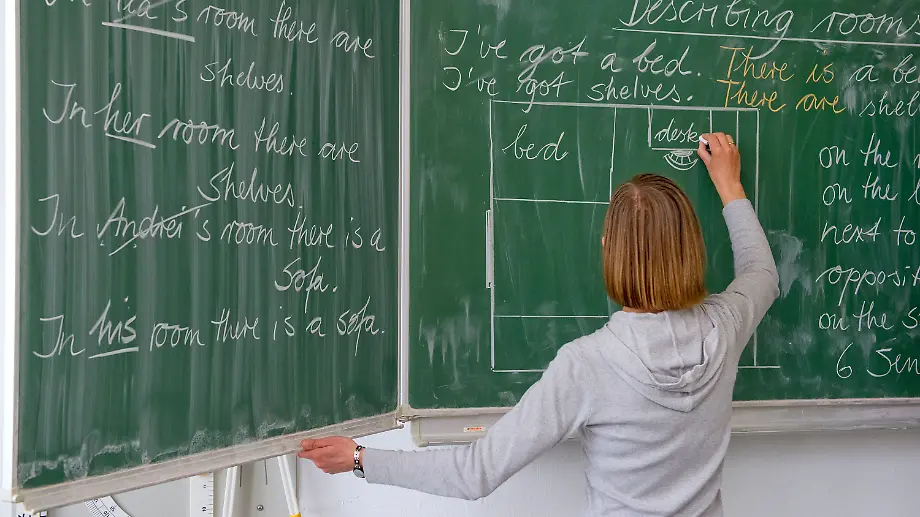 In 's room there are
shelves.
In her room there are
shelves.
In Andrei's room there is a
sofa.
In his room there is a sofa.
Describing room
I've got a bed. There is a be
I've got shelves. There are shel
bed
desk
on the
on the
next to
opposit
on the s
6 Sen